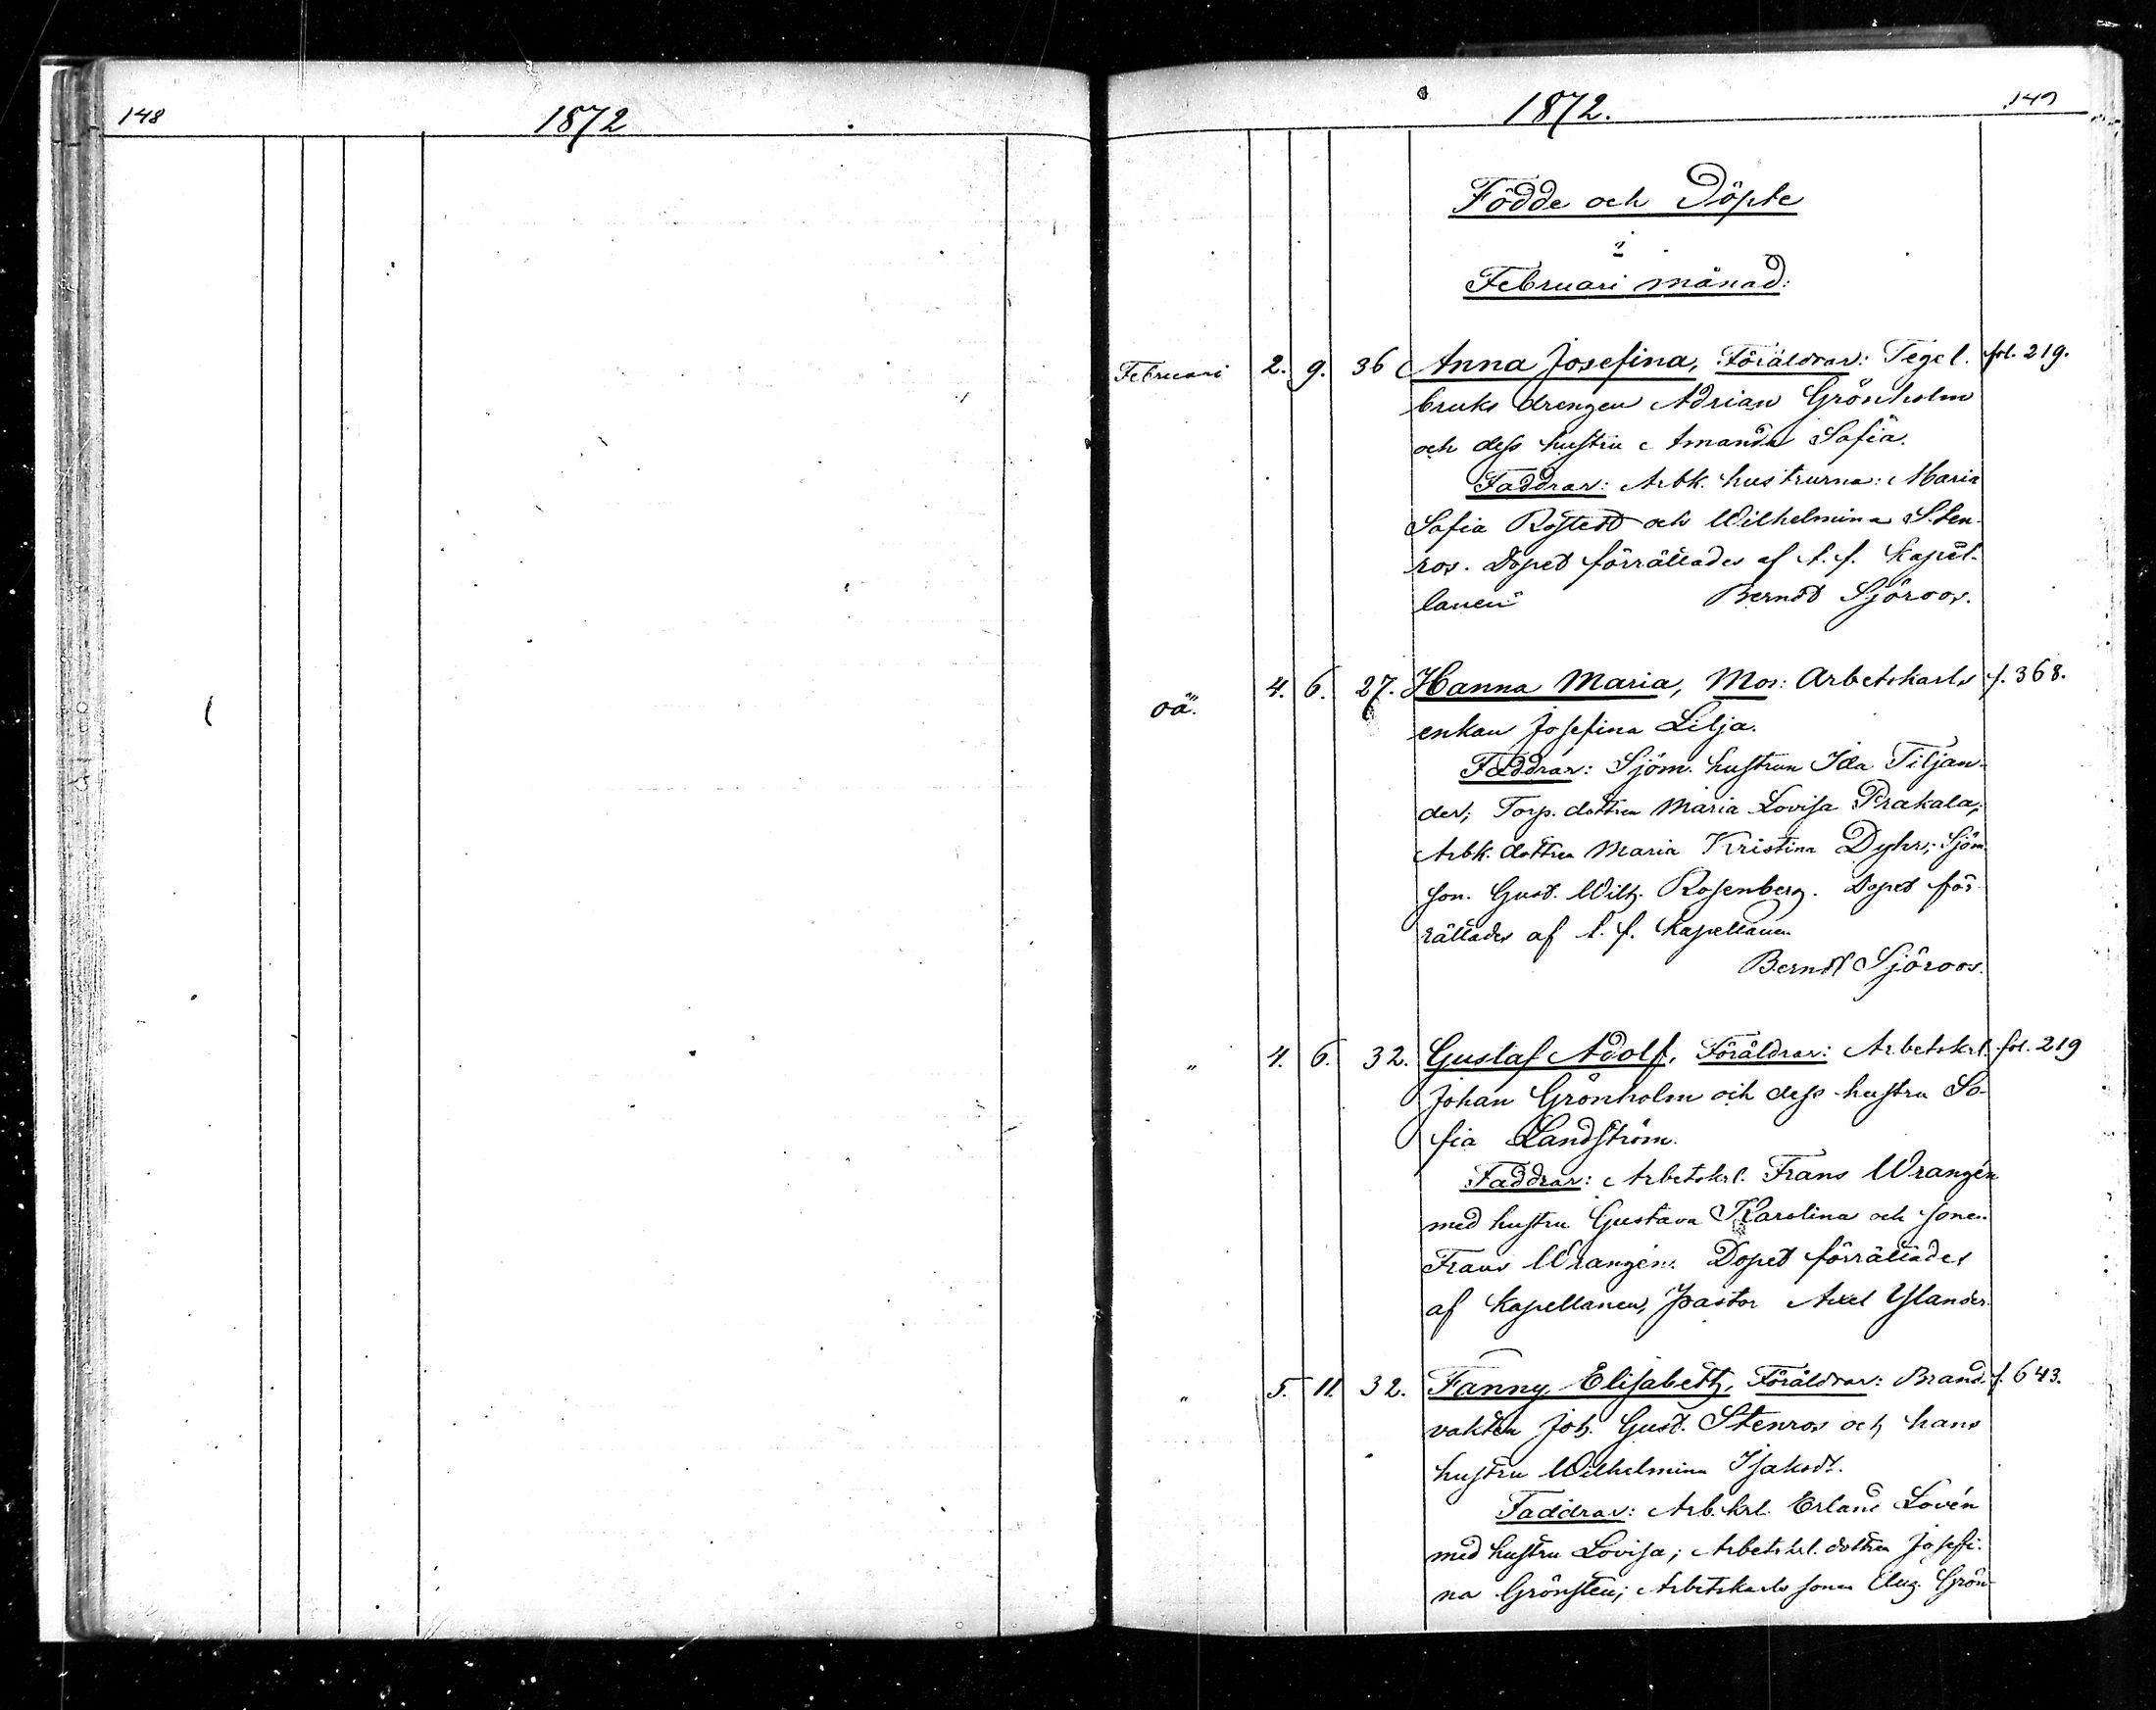 148
1872
1872.
149
Födde och Döpte
i
Februari månad:
Februari 2. 9. 36 Anna Josefina, Föräldrar: Tegel- fol. 219.
bruks drengen Adrian Grönholm
och dess hustru Amanda Sofia.
Faddrar: Arbk. hustrurna: Maria
Sofia Rostedt och Wilhelmina Sten-
ros. Dopet förrättades af t. f. Kapel-
lanen Berndt Sjöroos.
oä. 4. 6. 27. Hanna Maria, Mor: Arbetskarls f. 368.
enkan Josefina Lilja.
Faddrar: Sjöm. hustrun Ida Tiljan-
der; Torp. dottren Maria Lovisa Prakala;
Arbk. dottren Maria Kristina Dyhr; Sjöm.
son. Gust. Wilh. Rosenberg. Dopet för-
rättades af t. f. Kapellanen
Berndt Sjöroos.
" 4. 6. 32. Gustaf Adolf, Föräldrar: Arbetskrl. fol. 219
Johan Grönholm och dess hustru So-
fia Landström.
Faddrar: Arbetskrl. Frans Wrangén
med hustru Gustava Karolina och sonen
Frans Wrangén. Dopet förrättades
af Kapellanen, Pastor Axel Ylander.
" 5. 11. 32. Fanny Elisabeth, Föräldrar: Brand- f. 643.
vakten Joh. Gust. Stenros och hans
hustru Wilhelmina Isaksdt.
Faddrar: Arb.krl. Erland Lovén
med hustru Lovisa; Arbetskrl. dottren Josefi-
na Grönsten; Arbetskarls sonen Aug. Grön-